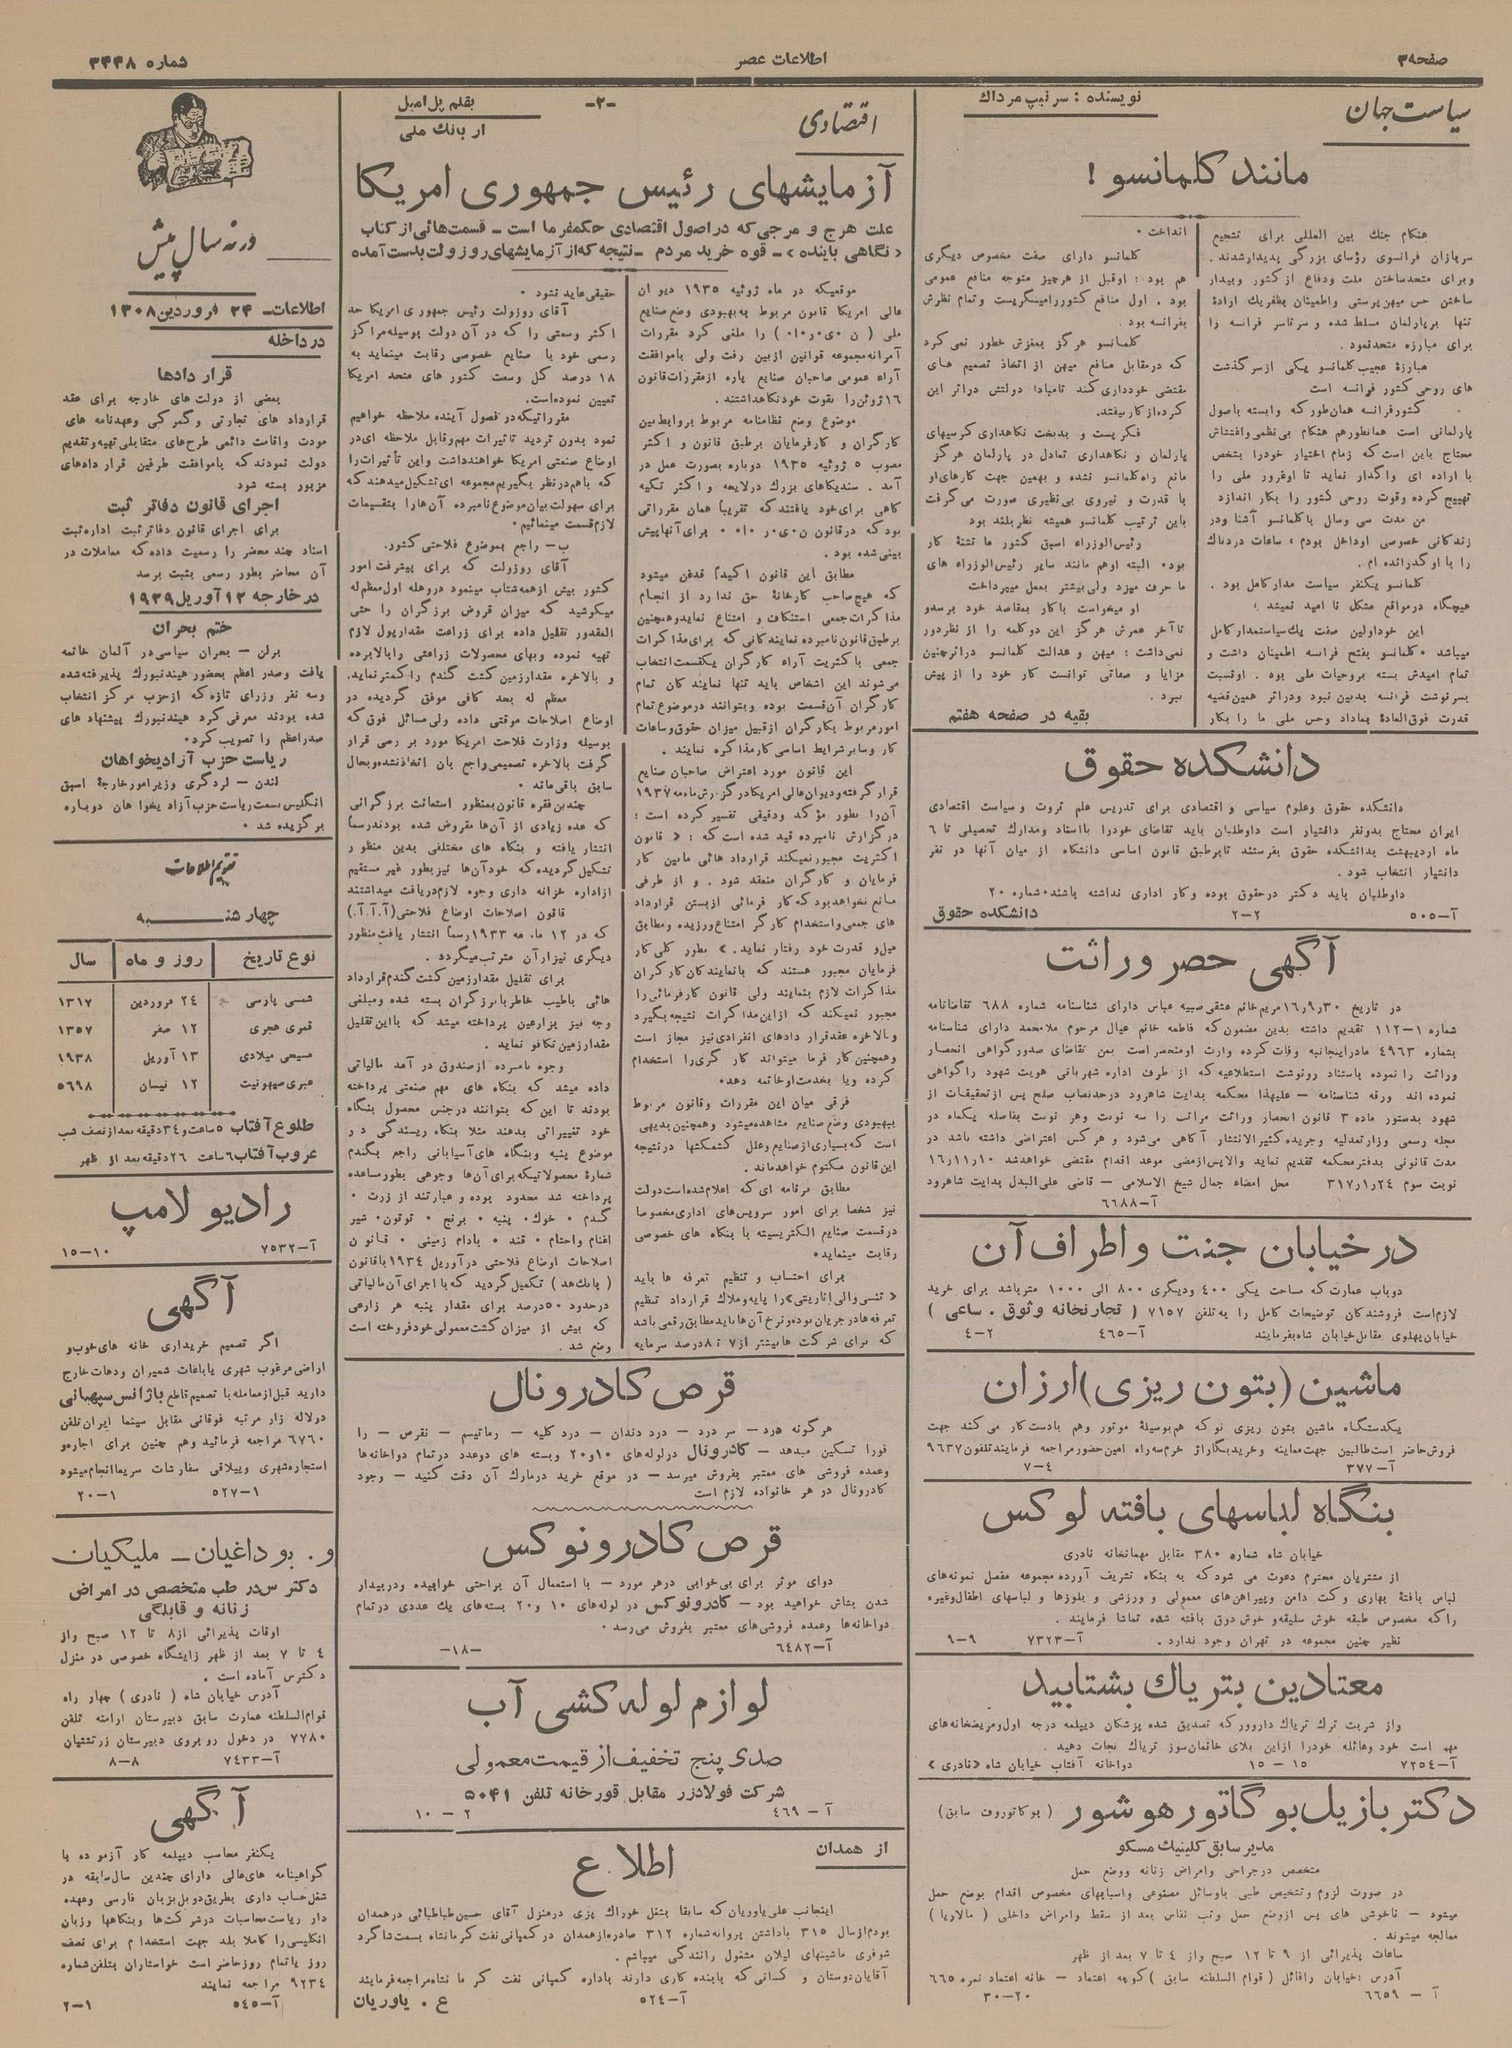 صفحه ۳
اطلاعات عصر
شماره ۳۴۴۸
سیاست جهان
نویسنده : سر نیپ مرداك
مانند کلمانسو !
هنگام جنك بین المللی برای تشجیع
سربازان فرانسوی رؤسای بزرگی پدیدار شدند.
وبرای متحدساختن ملت ودفاع از کشور وبیدار
ساختن حس میهن پرستی واطمینان بظفر یك ارادهٔ
تنها بر پارلمان مسلط شده و سرتاسر فرانسه را
برای مبارزه متحد نمود .
مبارزهٔ عجیب کلمانسو یکی از سر گذشت
های روحی کشور فرانسه است
کشور فرانسه همان‌طور که وابسته باصول
پارلمانی است همانطور هم هنگام بی‌نظمی واغتشاش
محتاج باین است که زمام اختیار خود را بشخص
با اراده ای واگذار نماید تا اوغرور ملی را
تهییج کرده وقوت روحی کشور را بکار اندازد
من مدت سی وسال با کلمانسو آشنا ودر
زندگانی خصوصی او داخل بودم ، ساعات دردناك
را با او گذرانده ام .
کلمانسو یکنفر سیاست مدار کامل بود .
هیچگاه در مواقع مشکل نا امید نمیشد ؛
این خود اولین صفت یك سیاستمدار کامل
میباشد . کلمانسو بفتح فرانسه اطمینان داشت و
تمام امیدش بسته بروحیات ملی بود . او نسبت
بسرنوشت فرانسه بدبین نبود ودر اثر همین قضیه
قدرت فوق العادهٔ بماداد وحس ملی ما را بکار
انداخت .
کلمانسو دارای صفت مخصوص دیگری
هم بود : او قبل از هر چیز متوجه منافع عمومی
بود . اول منافع کشور را مینگریست و تمام نظرش
بفرانسه بود .
کلمانسو هرگز بمغزش خطور نمی کرد
که در مقابل منافع میهن از اتخاذ تصمیم های
مقتضی خودداری کند تا مبادا دولتش در اثر این
کرده از کار بیفتد.
فکر پست و بدبخت نگاهداری کرسیهای
پارلمان و نگاهداری تعادل در پارلمان هرگز
مانع راه کلمانسو نشده و بهمین جهت کارهای او
با قدرت و نیروی بی‌نظیری صورت می‌گرفت
باین ترتیب کلمانسو همیشه نظر بلند بود
رئیس الوزراء اسبق کشور ما تشنهٔ کار
بود . البته اوهم مانند سایر رئیس الوزراء های
ما حرف میزد ولی بیشتر بعمل میپرداخت
او میخواست با کار بمقاصد خود برسد و
تا آخر عمرش هرگز این دو کلمه را از نظر دور
نمی‌داشت : میهن و عدالت کلمانسو در اثر چنین
مزایا و صفاتی توانست کار خود را از پیش
ببرد .
بقیه در صفحه هفتم
دانشکده حقوق
دانشکده حقوق وعلوم سیاسی و اقتصادی برای تدریس علم ثروت و سیاست اقتصادی
ایران محتاج بدونفر دانشیار است داوطلبان باید تقاضای خودرا بااسناد ومدارك تحصیلی تا ۶
ماه اردیبهشت بدانشکده حقوق بفرستند تا برطبق قانون اساسی دانشگاه از میان آنها دو نفر
دانشیار انتخاب شود .
داوطلبان باید دکتر درحقوق بوده وکار اداری نداشته باشند . شماره ۲۰
آ—۵۰۵ ۲–۲ دانشکده حقوق
آگهی حصر وراثت
در تاریخ ۱۶٫۹٫۳۰ مریم خانم عشقی صبیه عباس دارای شناسنامه شماره ۶۸۸ تقاضانامه
شماره ۱–۱۱۲ تقدیم داشته بدین مضمون که فاطمه خانم عیال مرحوم ملامحمد دارای شناسنامه
بشماره ۴۹۶۳ مادر اینجانبه وفات کرده وارث اومنحصر است بمن تقاضای صدور گواهی انحصار
وراثت را نموده باستناد رونوشت استطلاعیه که از طرف اداره شهربانی هویت شهود را گواهی
نموده اند ورقه شناسنامه — علیهذا محکمه بدایت شاهرود در حد نصاب صلح پس از تحقیقات از
شهود بدستور ماده ۳ قانون انحصار وراثت مراتب را سه نوبت وهر نوبت بفاصله یکماه در
مجله رسمی وزارتعدلیه وجریده کثیرالانتشار آگاهی می‌شود و هر کس اعتراضی داشته باشد در
مدت قانونی بدفتر محکمه تقدیم نماید والا پس از مضی موعد اقدام مقتضی خواهد شد ۱۶٫۱۱٫۱۰
نوبت سوم ۳۱۷٫۱٫۲۴ محل امضاء جمال شیخ الاسلامی — قاضی علی البدل بدایت شاهرود
آ—۶۶۸۸
در خیابان جنت و اطراف آن
دوباب عمارت که مساحت یکی ۴۰۰ ودیگری ۸۰۰ الی ۱۰۰۰ متر باشد برای خرید
لازم است فروشندگان توضیحات کامل را به تلفن ۷۱۵۷ ( تجارتخانه وثوق . ساعی )
خیابان پهلوی مقابل خیابان شاه بفرمایند آ—۴۶۵ ۲–۴
ماشین (بتون ریزی) ارزان
یکدستگاه ماشین بتون ریزی نو که هم بوسیلهٔ موتور وهم بادست کار می کند جهت
فروش حاضر است طالبین جهت معاینه وخرید بگاراژ خرم سه راه امین حضور مراجعه فرمایند تلفون ۹۶۳۷
آ—۳۷۷ ۴–۷
بنگاه لباسهای بافته لوکس
خیابان شاه شماره ۳۸۰ مقابل مهمانخانه نادری
از مشتریان محترم دعوت می شود که به بنگاه تشریف آورده مجموعه مفصل نمونه‌های
لباس بافتهٔ بهاری و کت دامن وپیراهن‌های معمولی و ورزشی و بلوزها و لباسهای اطفال وغیره
را که مخصوص طبقه خوش سلیقه و خوش ذوق بافته شده تماشا فرمایند .
نظیر چنین مجموعه در تهران وجود ندارد . آ—۷۳۲۳ ۹–۹
معتادین بتریاك بشتابید
واز شربت ترك تریاك داروور که تصدیق شده پزشکان دیپلمه درجه اول ومریضخانه‌های
مهم است خود وعائله خودرا ازاین بلای خانمان‌سوز تریاك نجات دهید .
آ—۷۲۵۴ ۱۵ – ۱۵ دواخانه آفتاب خیابان شاه «نادری»
دکتر بازیل بوگاتور هوشور ( بوکاتوروف سابق)
مدیر سابق کلینیك مسکو
متخصص در جراحی وامراض زنانه ووضع حمل
در صورت لزوم وتشخیص طبی باوسائل مصنوعی واسبابهای مخصوص اقدام بوضع حمل
میشود — ناخوشی های پس ازوضع حمل وتب نفاس بعد از سقط وامراض داخلی ( مالاریا )
معالجه میشوند .
ساعات پذیرائی از ۹ تا ۱۲ صبح واز ۴ تا ۷ بعد از ظهر
آدرس : خیابان رافائل ( قوام السلطنه سابق ) کوچه اعتماد — خانه اعتماد نمره ۶۶۵
آ — ۶۶۵۹ ۲۰—۳۰
اقتصادی
–۲–
بقلم پل امیل
از بانك ملی
آزمایشهای رئیس جمهوری امریکا
علت هرج و مرجی که در اصول اقتصادی حکمفرما است – قسمت‌هائی از کتاب
«نگاهی باینده» – قوه خرید مردم – نتیجه که از آزمایشهای روزولت بدست آمده
موقعیکه در ماه ژوئیه ۱۹۳۵ دیوان
عالی امریکا قانون مربوط به بهبودی وضع صنایع
ملی ( ن . ی . ر . ا . ) را ملغی کرد مقررات
آمرانه مجموعه قوانین از بین رفت ولی باموافقت
آراء عمومی صاحبان صنایع پاره از مقررات قانون
۱۶ ژوئن را بقوت خود نگاهداشتند .
موضوع وضع نظامنامه مربوط بروابط بین
کارگران و کارفرمایان برطبق قانون و اکثر
مصوب ۵ ژوئیه ۱۹۳۵ دوباره بصورت عمل در
آمد . سندیکاهای بزرك در لایحه و اکثر تکیه
گاهی برای خود یافتند که تقریبا همان مقرراتی
بود که در قانون ن . ی . ر . ا . برای آنها پیش
بینی شده بود .
مطابق این قانون اکیداً قدغن میشود
که هیچ صاحب کارخانهٔ حق ندارد از انجام
مذاکرات جمعی استنکاف و امتناع نماید وهمچنین
برطبق قانون نامبرده نمایندگانی که برای مذاکرات
جمعی با کثریت آراء کارگران یکقسمت انتخاب
می‌شوند این اشخاص باید تنها نمایندگان تمام
کارگران آن‌قسمت بوده وبتوانند در موضوع تمام
امور مربوط بکارگران از قبیل میزان حقوق وساعات
کار وسایر شرایط اساسی کار مذاکره نمایند .
این قانون مورد اعتراض صاحبان صنایع
قرار گرفته و دیوان عالی امریکا در گزارش ماه مه ۱۹۳۷
آن را بطور مؤکد ودقیقی تفسیر کرده است :
در گزارش نامبرده قید شده است که : « قانون
اکثریت مجبور نمیکند قرارداد هائی مابین کار
فرمایان و کارگران منعقد شود . و از طرفی
مانع نخواهد بود که کار فرمائی از بستن قرارداد
های جمعی واستخدام کارگر امتناع ورزیده ومطابق
میل و قدرت خود رفتار نماید . » بطور کلی کار
فرمایان مجبور هستند که با نمایندگان کارگران
مذاکرات لازم بنمایند ولی قانون کارفرمائی را
مجبور نمیکند که از این مذاکرات نتیجه بگیرد
و بالاخره عقد قرارداد های انفرادی نیز مجاز است
وهمچنین کار فرما میتواند کارگری را استخدام
کرده ویا بخدمت او خاتمه دهد .
فرقی میان این مقررات وقانون مربوط
ببهبودی وضع صنایع مشاهده میشود وهمچنین بدیهی
است که بسیاری از صنایع وعلل کشمکشها در نتیجه
این قانون مکتوم خواهد ماند .
مطابق برنامه ای که اعلام شده است دولت
نیز شخصا برای امور سرویس‌های اداری مخصوصا
در قسمت صنایع الکتریسیته با بنگاه های خصوصی
رقابت مینماید .
برای احتساب و تنظیم تعرفه ها باید
« تنسی والی اتاریتی» را پایه وملاك قرارداد تنظیم
تعرفه ها در جریان بوده و نرخ آن‌ها باید مطابق رقمی باشد
که برای شرکت ها بیشتر از ۷ تا ۸ درصد سرمایه
حقیقی عاید نشود .
آقای روزولت رئیس جمهوری امریکا حد
اکثر وسعتی را که در آن دولت بوسیله مراکز
رسمی خود با صنایع خصوصی رقابت مینماید به
۱۸ درصد کل وسعت کشور های متحد امریکا
تعیین نموده است.
مقرراتیکه در فصول آینده ملاحظه خواهیم
نمود بدون تردید تاثیرات مهم وقابل ملاحظه ای در
اوضاع صنعتی امریکا خواهند داشت واین تأثیرات را
که باهم در نظر بگیریم مجموعه ای تشکیل میدهند که
برای سهولت بیان موضوع نامبرده آن‌ها را بتقسیمات
لازم قسمت مینمائیم .
ب– راجع بموضوع فلاحتی کشور.
آقای روزولت که برای پیشرفت امور
کشور بیش از همه شتاب مینمود در وهله اول معظم له
میکوشید که میزان قروض برزگران را حتی
المقدور تقلیل داده برای زراعت مقدار پول لازم
تهیه نموده وبهای محصولات زراعتی را بالا برده
و بالاخره مقدار زمین کشت گندم را کمتر نماید.
معظم له بعد کافی موفق گردیده در
اوضاع اصلاحات موقتی داده ولی مسائل فوق که
بوسیله وزارت فلاحت امریکا مورد بررسی قرار
گرفت بالاخره تصمیمی راجع بان اتخاذ نشده و بحال
سابق باقی ماند .
چندین فقره قانون بمنظور استعانت برزگرانی
که عده زیادی از آن‌ها مقروض شده بودند رسما
انتشار یافته و بنگاه های مختلفی بدین منظور
تشکیل گردیده که خود آن‌ها نیز بطور غیر مستقیم
از اداره خزانه داری وجوه لازم دریافت میداشتند
قانون اصلاحات اوضاع فلاحتی (آ.آ.آ.)
که در ۱۲ ماه مه ۱۹۳۳ رسما انتشار یافت منظور
دیگری نیز از آن مترتب میگردد .
برای تقلیل مقدار زمین کشت گندم قرارداد
هائی باطیب خاطر با برزگران بسته شده و مبلغی
وجه نیز بزارعین پرداخته میشد که با این تقلیل
مقدار زمین تکافو نماید .
وجوه نامبرده از صندوق در آمد مالیاتی
داده میشد که بنگاه های مهم صنعتی پرداخته
بودند تا این که بتوانند در جنس محصول بنگاه
خود تغییراتی بدهند مثلا بنگاه ریسندگی در
موضوع پنبه وبنگاه های آسیابانی راجع بگندم
شمارهٔ محصولاتیکه برای آن‌ها وجوهی بطور مساعده
پرداخته شد محدود بوده و عبارتند از ذرت .
گندم . خوك . پنبه . برنج . توتون . شیر
اغنام واحشام . قند . بادام زمینی . قانون
اصلاحات اوضاع فلاحتی در آوریل ۱۹۳۴ با قانون
( بانك‌هد ) تکمیل گردید که با اجرای آن مالیاتی
در حدود ۵۰ درصد برای مقدار پنبه هر زارعی
که بیش از میزان کشت معمولی خود فروخته است
وضع شد .
قرص کادرونال
هر گونه درد — سر درد — درد دندان — درد کلیه — رماتیسم — نقرص — را
فورا تسکین میدهد — کادرونال در لوله‌های ۱۰ و ۲۰ وبسته های دوعدد در تمام دواخانه‌ها
وعمده فروشی های معتبر بفروش میرسد — در موقع خرید درمارك آن دقت کنید — وجود
کادرونال در هر خانواده لازم است
قرص کادرونوکس
دوای موثر برای بی‌خوابی در هر مورد — با استعمال آن براحتی خوابیده ودر بیدار
شدن بشاش خواهید بود — کادرونوکس در لوله‌های ۱۰ و ۲۰ بسته‌های یك عددی در تمام
دواخانه‌ها وعمده فروشی‌های معتبر بفروش می‌رسد .
آ—۶۴۸۲ —۱۸—
لوازم لوله کشی آب
صدی پنج تخفیف از قیمت معمولی
شرکت فولادزر مقابل قورخانه تلفن ۵۰۴۱
آ — ۴۶۹ ۲ — ۱۰
از همدان
اطلاع
اینجانب علی یاوریان که سابقا بشغل خوراك پزی در منزل آقای حسین طباطبائی در همدان
بودم از سال ۳۱۵ باداشتن پروانه شماره ۳۱۲ صادره از همدان در کمپانی نفت کرمانشاه بسمت شاگرد
شوفری ماشینهای لیلان مشغول رانندگی میباشم .
آقایان دوستان و کسانی که بابنده کاری دارند باداره کمپانی نفت کرمانشاه مراجعه فرمایند
آ—۵۲۴ ع . یاوریان
در نه سال پیش
اطلاعات– ۲۴ فروردین ۱۳۰۸
در داخله
قرار دادها
بعضی از دولت های خارجه برای عقد
قرارداد های تجارتی و گمرکی وعهدنامه های
مودت واقامت دائمی طرح‌های متقابلی تهیه وتقدیم
دولت نمودند که باموافقت طرفین قراردادهای
مزبور بسته شود
اجرای قانون دفاتر ثبت
برای اجرای قانون دفاتر ثبت اداره ثبت
اسناد چند محضر را رسمیت داده که معاملات در
آن محاضر بطور رسمی بثبت برسد
در خارجه ۱۲ آوریل ۱۹۲۹
ختم بحران
برلن — بحران سیاسی در آلمان خاتمه
یافت وصدر اعظم بحضور هیندنبورك پذیرفته شده
وسه نفر وزرای تازه که از حزب مرکز انتخاب
شده بودند معرفی کرد هیندنبورك پیشنهاد های
صدراعظم را تصویب کرد .
ریاست حزب آزادیخواهان
لندن — لرد گری وزیر امور خارجهٔ اسبق
انگلیس بسمت ریاست حزب آزاد یخوا هان دوباره
برگزیده شد .
تقویم اطلاعات
چهارشنبه
نوع تاریخ | روز و ماه | سال
شمسی پارسی ۲۴ فروردین ۱۳۱۷
قمری هجری ۱۲ صفر ۱۳۵۷
مسیحی میلادی ۱۳ آوریل ۱۹۳۸
عبری صیهونیت ۱۲ نیسان ۵۶۹۸
طلوع آفتاب ۵ ساعت و ۳۴ دقیقه بعد از نصف شب
غروب آفتاب ۶ ساعت ۲۶ دقیقه بعد از ظهر
رادیو لامپ
آ—۷۵۳۲ ۱۰—۱۵
آگهی
اگر تصمیم خریداری خانه های خوب و
اراضی مرغوب شهری یاباغات شمیران ودهات خارج
دارید قبل از معامله با تصمیم قاطع باژانس سپهانی
در لاله زار مرتبه فوقانی مقابل سینما ایران تلفن
۶۷۶۰ مراجعه فرمائید وهم چنین برای اجاره و
استجاره شهری وییلاقی سفارشات سریعا انجام میشود
۱—۵۲۷ ۱—۲۰
و. بوداغیان – ملیکیان
دکترس در طب متخصص در امراض
زنانه و قابلگی
اوقات پذیرائی از ۸ تا ۱۲ صبح واز
۴ تا ۷ بعد از ظهر زایشگاه خصوصی در منزل
دکترس آماده است .
آدرس خیابان شاه ( نادری ) چهار راه
قوام السلطنه عمارت سابق دبیرستان ارامنه تلفن
۷۷۸۰ در دخول روبروی دبیرستان زرتشتیان
آ—۷۴۳۳ ۸—۸
آگهی
یکنفر محاسب دیپلمه کار آزموده با
گواهینامه های عالی دارای چندین سال سابقه در
شغل حساب داری بطریق دوبل بزبان فارسی وعهده
دار ریاست محاسبات در شرکت‌ها وبنگاهها وزبان
انگلیسی را کاملا بلد جهت استخدام برای نصف
روز یا تمام روز حاضر است خواستاران بتلفن شماره
۹۲۳۴ مراجعه نمایند
آ—۵۴۵ ۱—۲